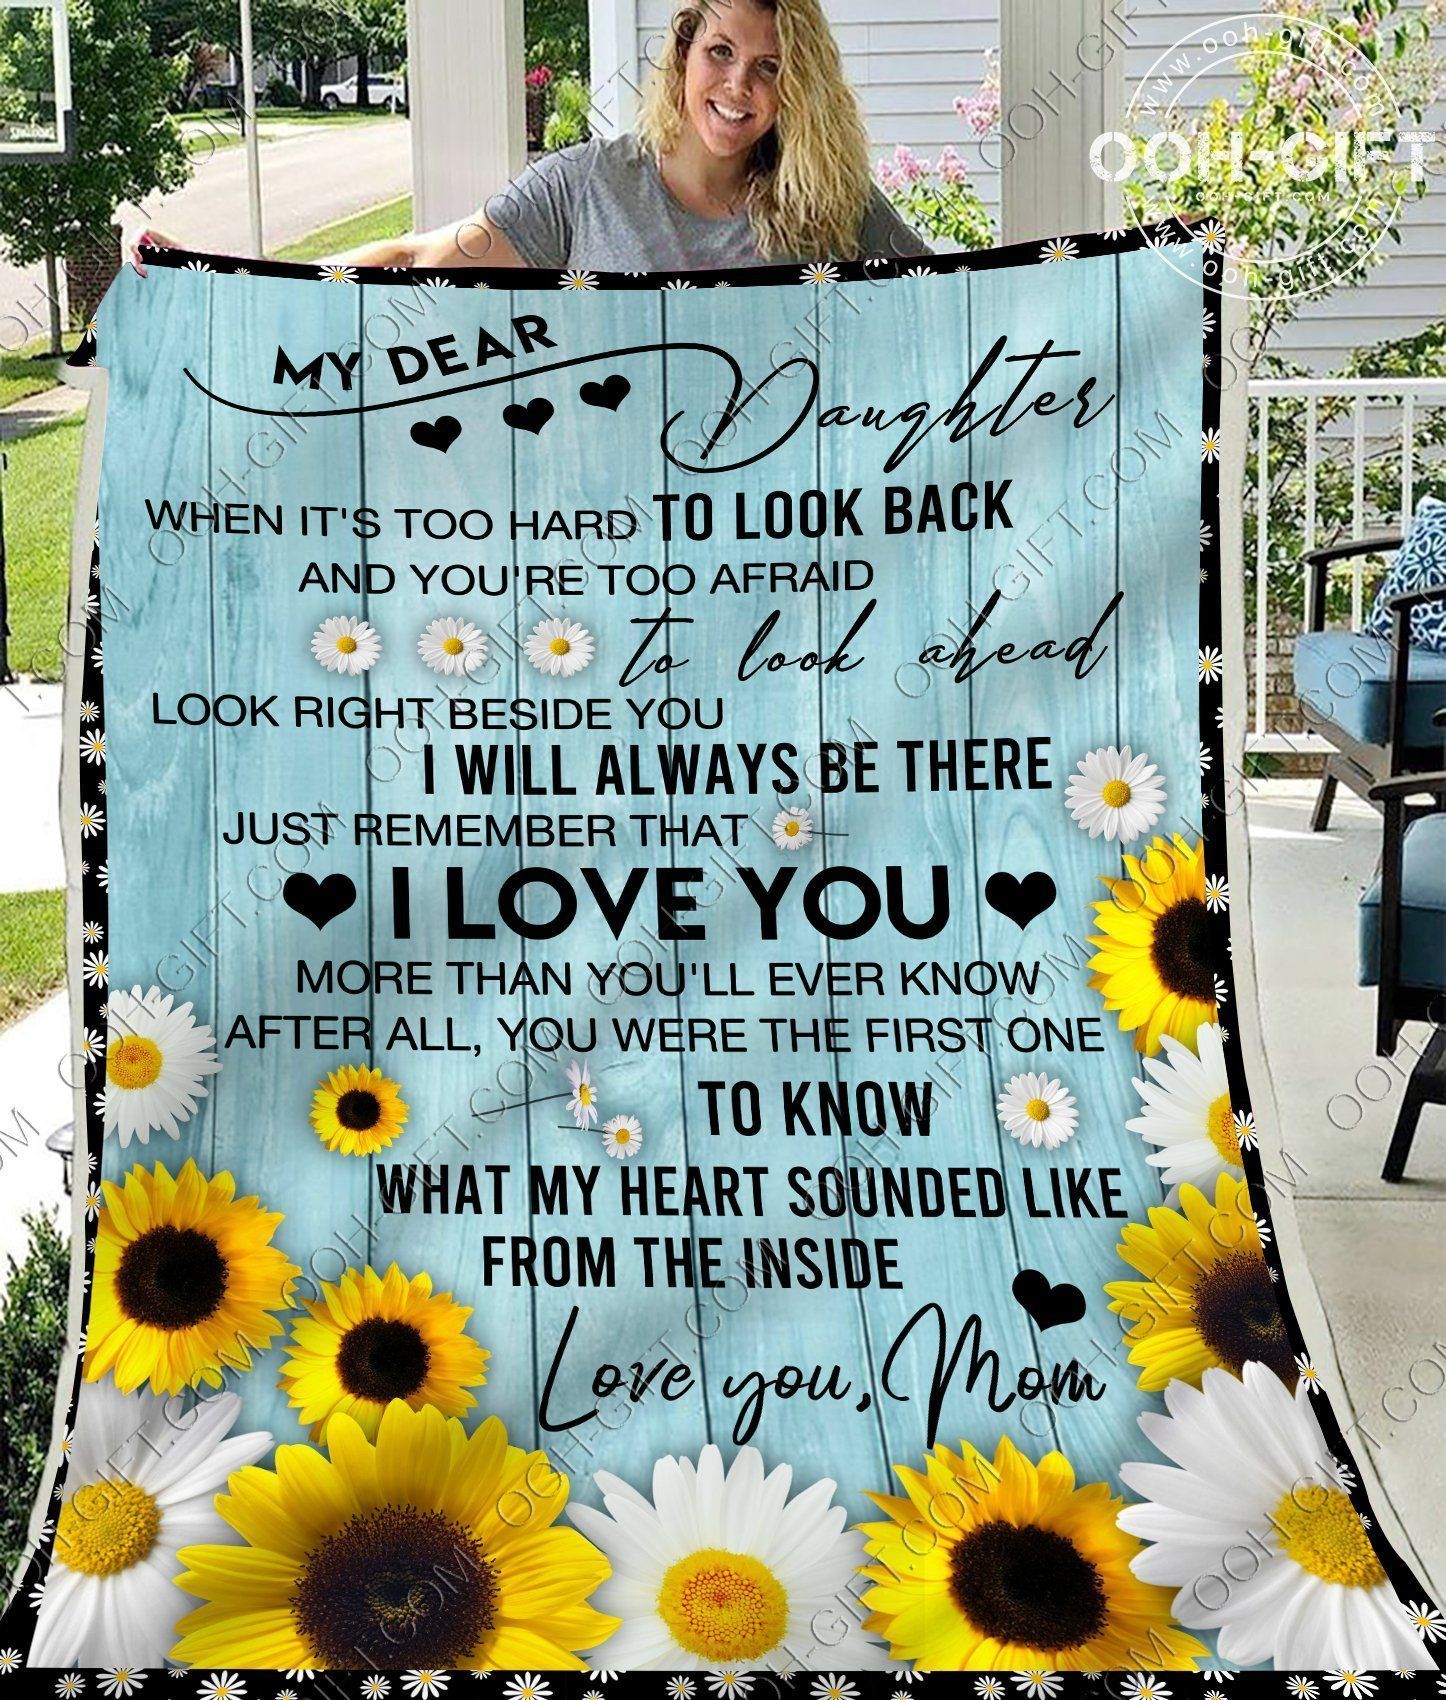 www.ooh-gift.com
OOH-GIFT
OOH-GIFT.COM
www.ooh-gift.com
SPALDING
MY DEAR
Daughter
WHEN IT'S TOO HARD TO LOOK BACK
AND YOU'RE TOO AFRAID
to look ahead
LOOK RIGHT BESIDE YOU
I WILL ALWAYS BE THERE
JUST REMEMBER THAT
I LOVE YOU
MORE THAN YOU'LL EVER KNOW
AFTER ALL, YOU WERE THE FIRST ONE
TO KNOW
WHAT MY HEART SOUNDED LIKE
FROM THE INSIDE
Love you, Mom
OOH-GIFT.COM